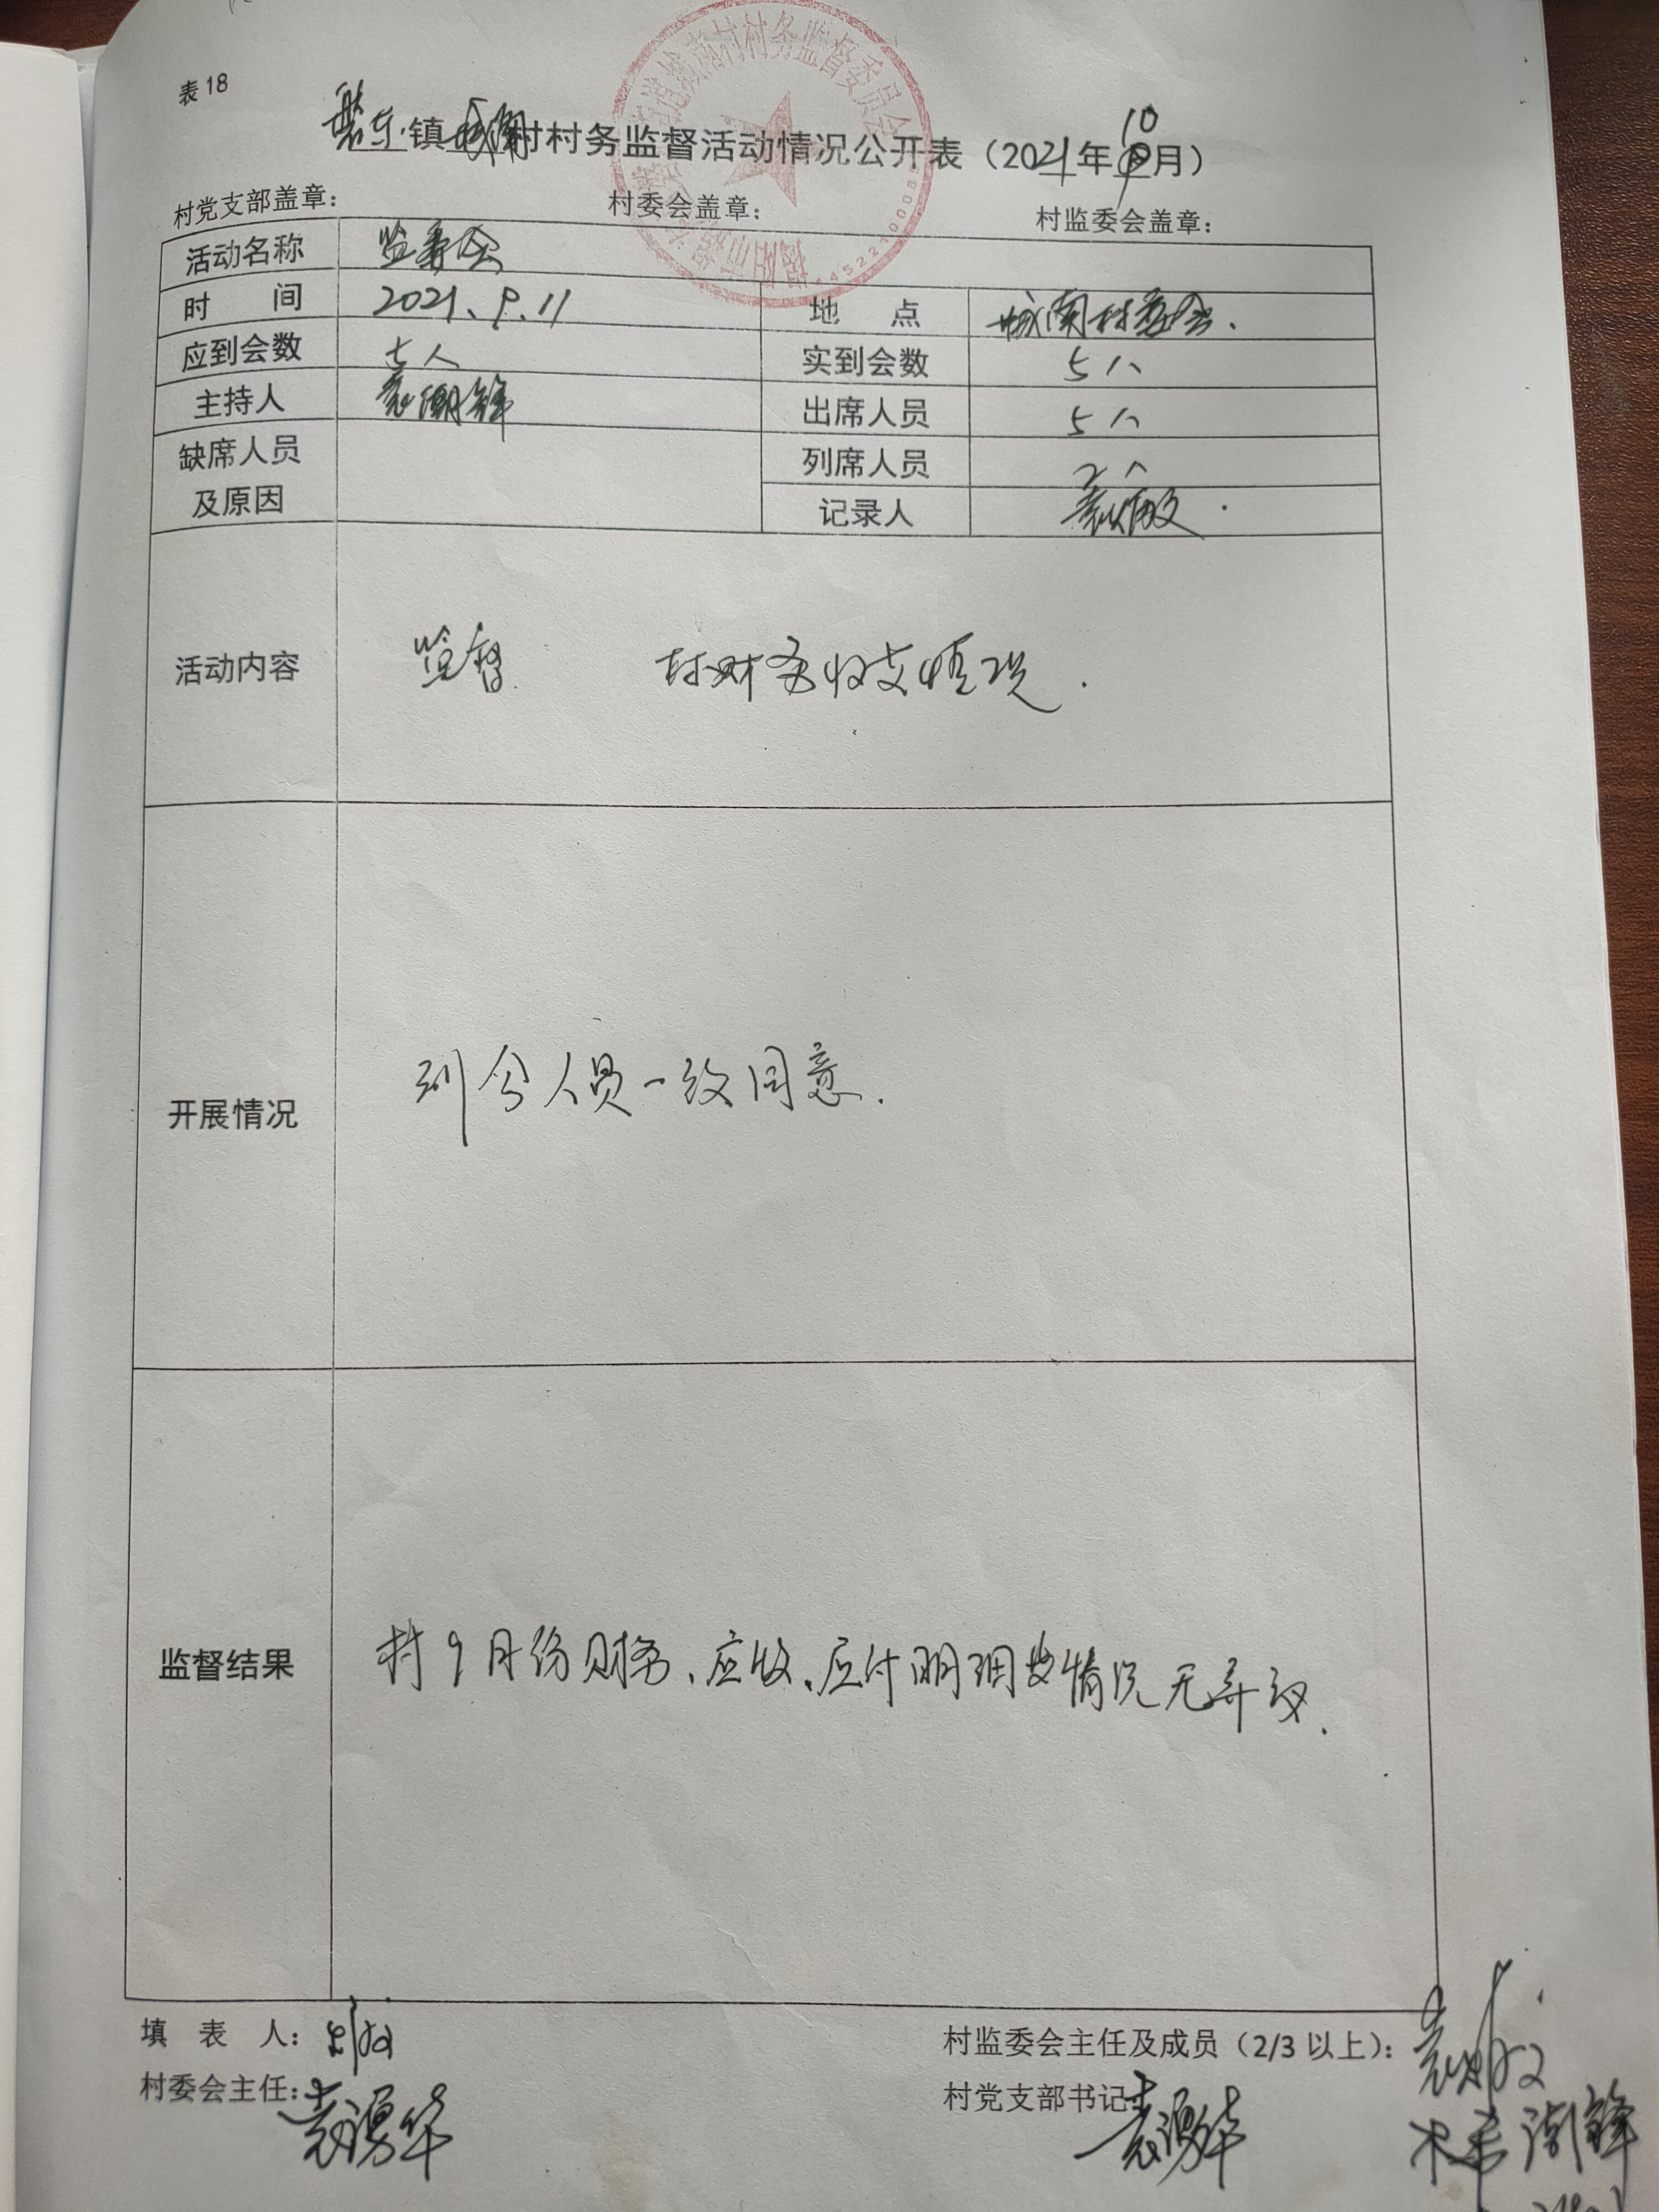 表18
磐东镇城南村村务监督活动情况公开表（2021年10月）
村党支部盖章： 村委会盖章： 村监委会盖章：
活动名称 监委会
时 间 2021.9.11 地 点 城南村委会.
应到会数 七人 实到会数 5人
主持人 袁潮锋 出席人员 5人
缺席人员及原因 列席人员 2人
记录人 袁
活动内容 监督 村财务收支情况.
开展情况 到会人员一致同意.
监督结果 村9月份财务、应收、应付明细 情况无异议.
填 表 人： 村监委会主任及成员（2/3以上）：
村委会主任：袁湧华 村党支部书记 袁湧华
潮锋
城南村村务监督委员会